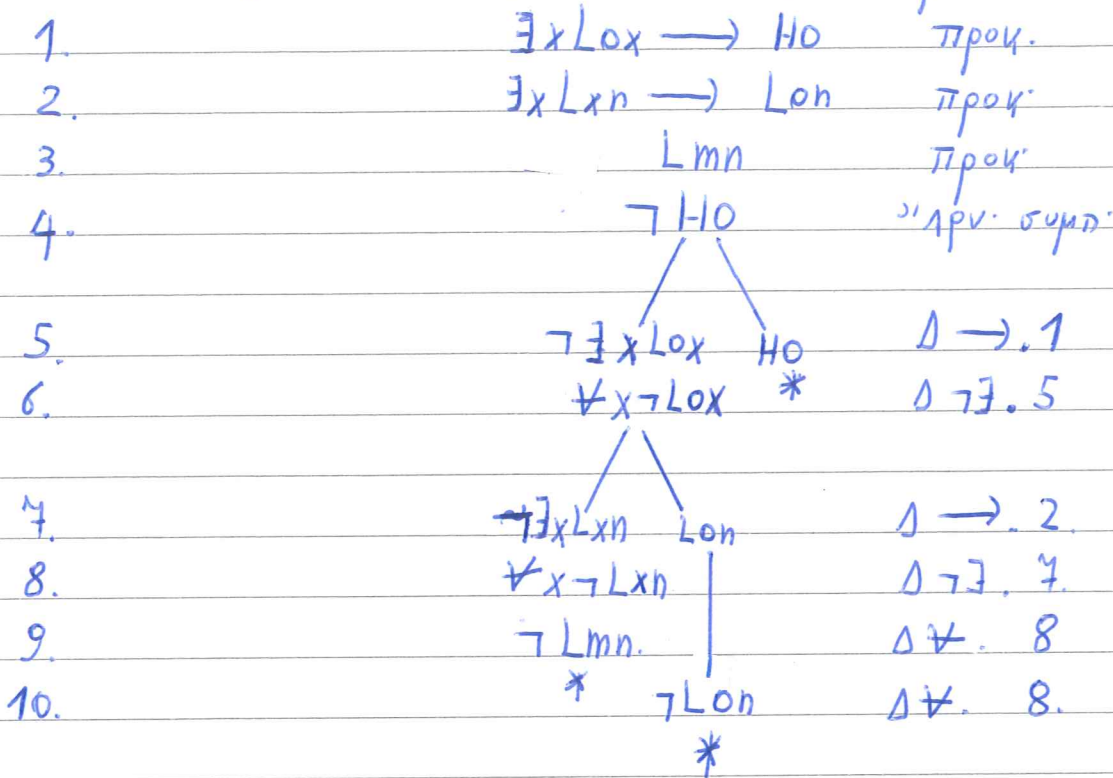 1. ∃xLox → Ho προκ.
2. ∃xLxn → Lon προκ.
3. Lmn προκ.
4. ¬Ho Άρν. συμπ.
5. ¬∃xLox Ho Δ→.1
6. ∀x¬Lox * Δ¬∃.5
7. ¬∃xLxn Lon Δ→. 2.
8. ∀x¬Lxn Δ¬∃. 7.
9. ¬Lmn. Δ∀. 8
*
10. ¬Lon Δ∀. 8.
*